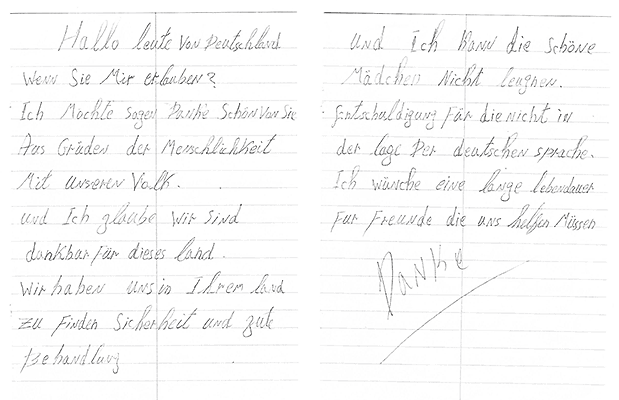 Hallo leute Von Deutschland
Wenn Sie Mir erlauben?
Ich Mochte sagen Danke Schön Von Sie
Aus Grüden der Menschlichkeit
Mit unseren Volk.
und Ich glaube wir sind
dankbar Für dieses land.
wir haben uns in Ihrem land
zu Finden Sicherheit und gute
Behandlung
und Ich Kann die schöne
Mädchen Nicht leugnen.
Entschuldigung Für die nicht in
der lage Der deutschen sprache.
Ich wünche eine lange lebendauer
Für Freunde die uns helfen Müssen
Danke